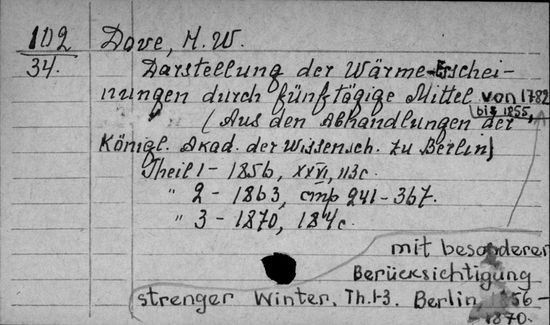 102
34.
Dove, H. W.
Darstellung der Wärme-Erschei-
nungen durch fünftägige Mittel von 1782
bis 1855,
(Aus den Abhandlungen der
Königl. Akad. der Wissensch. zu Berlin)
Theil 1 - 1856, XXVI, 113 с.
" 2 - 1863, стр 241-367.
" 3 - 1870, 184 с.
mit besonderer
Berücksichtigung
strenger Winter. Th. 1-3. Berlin, 1856-
1870.